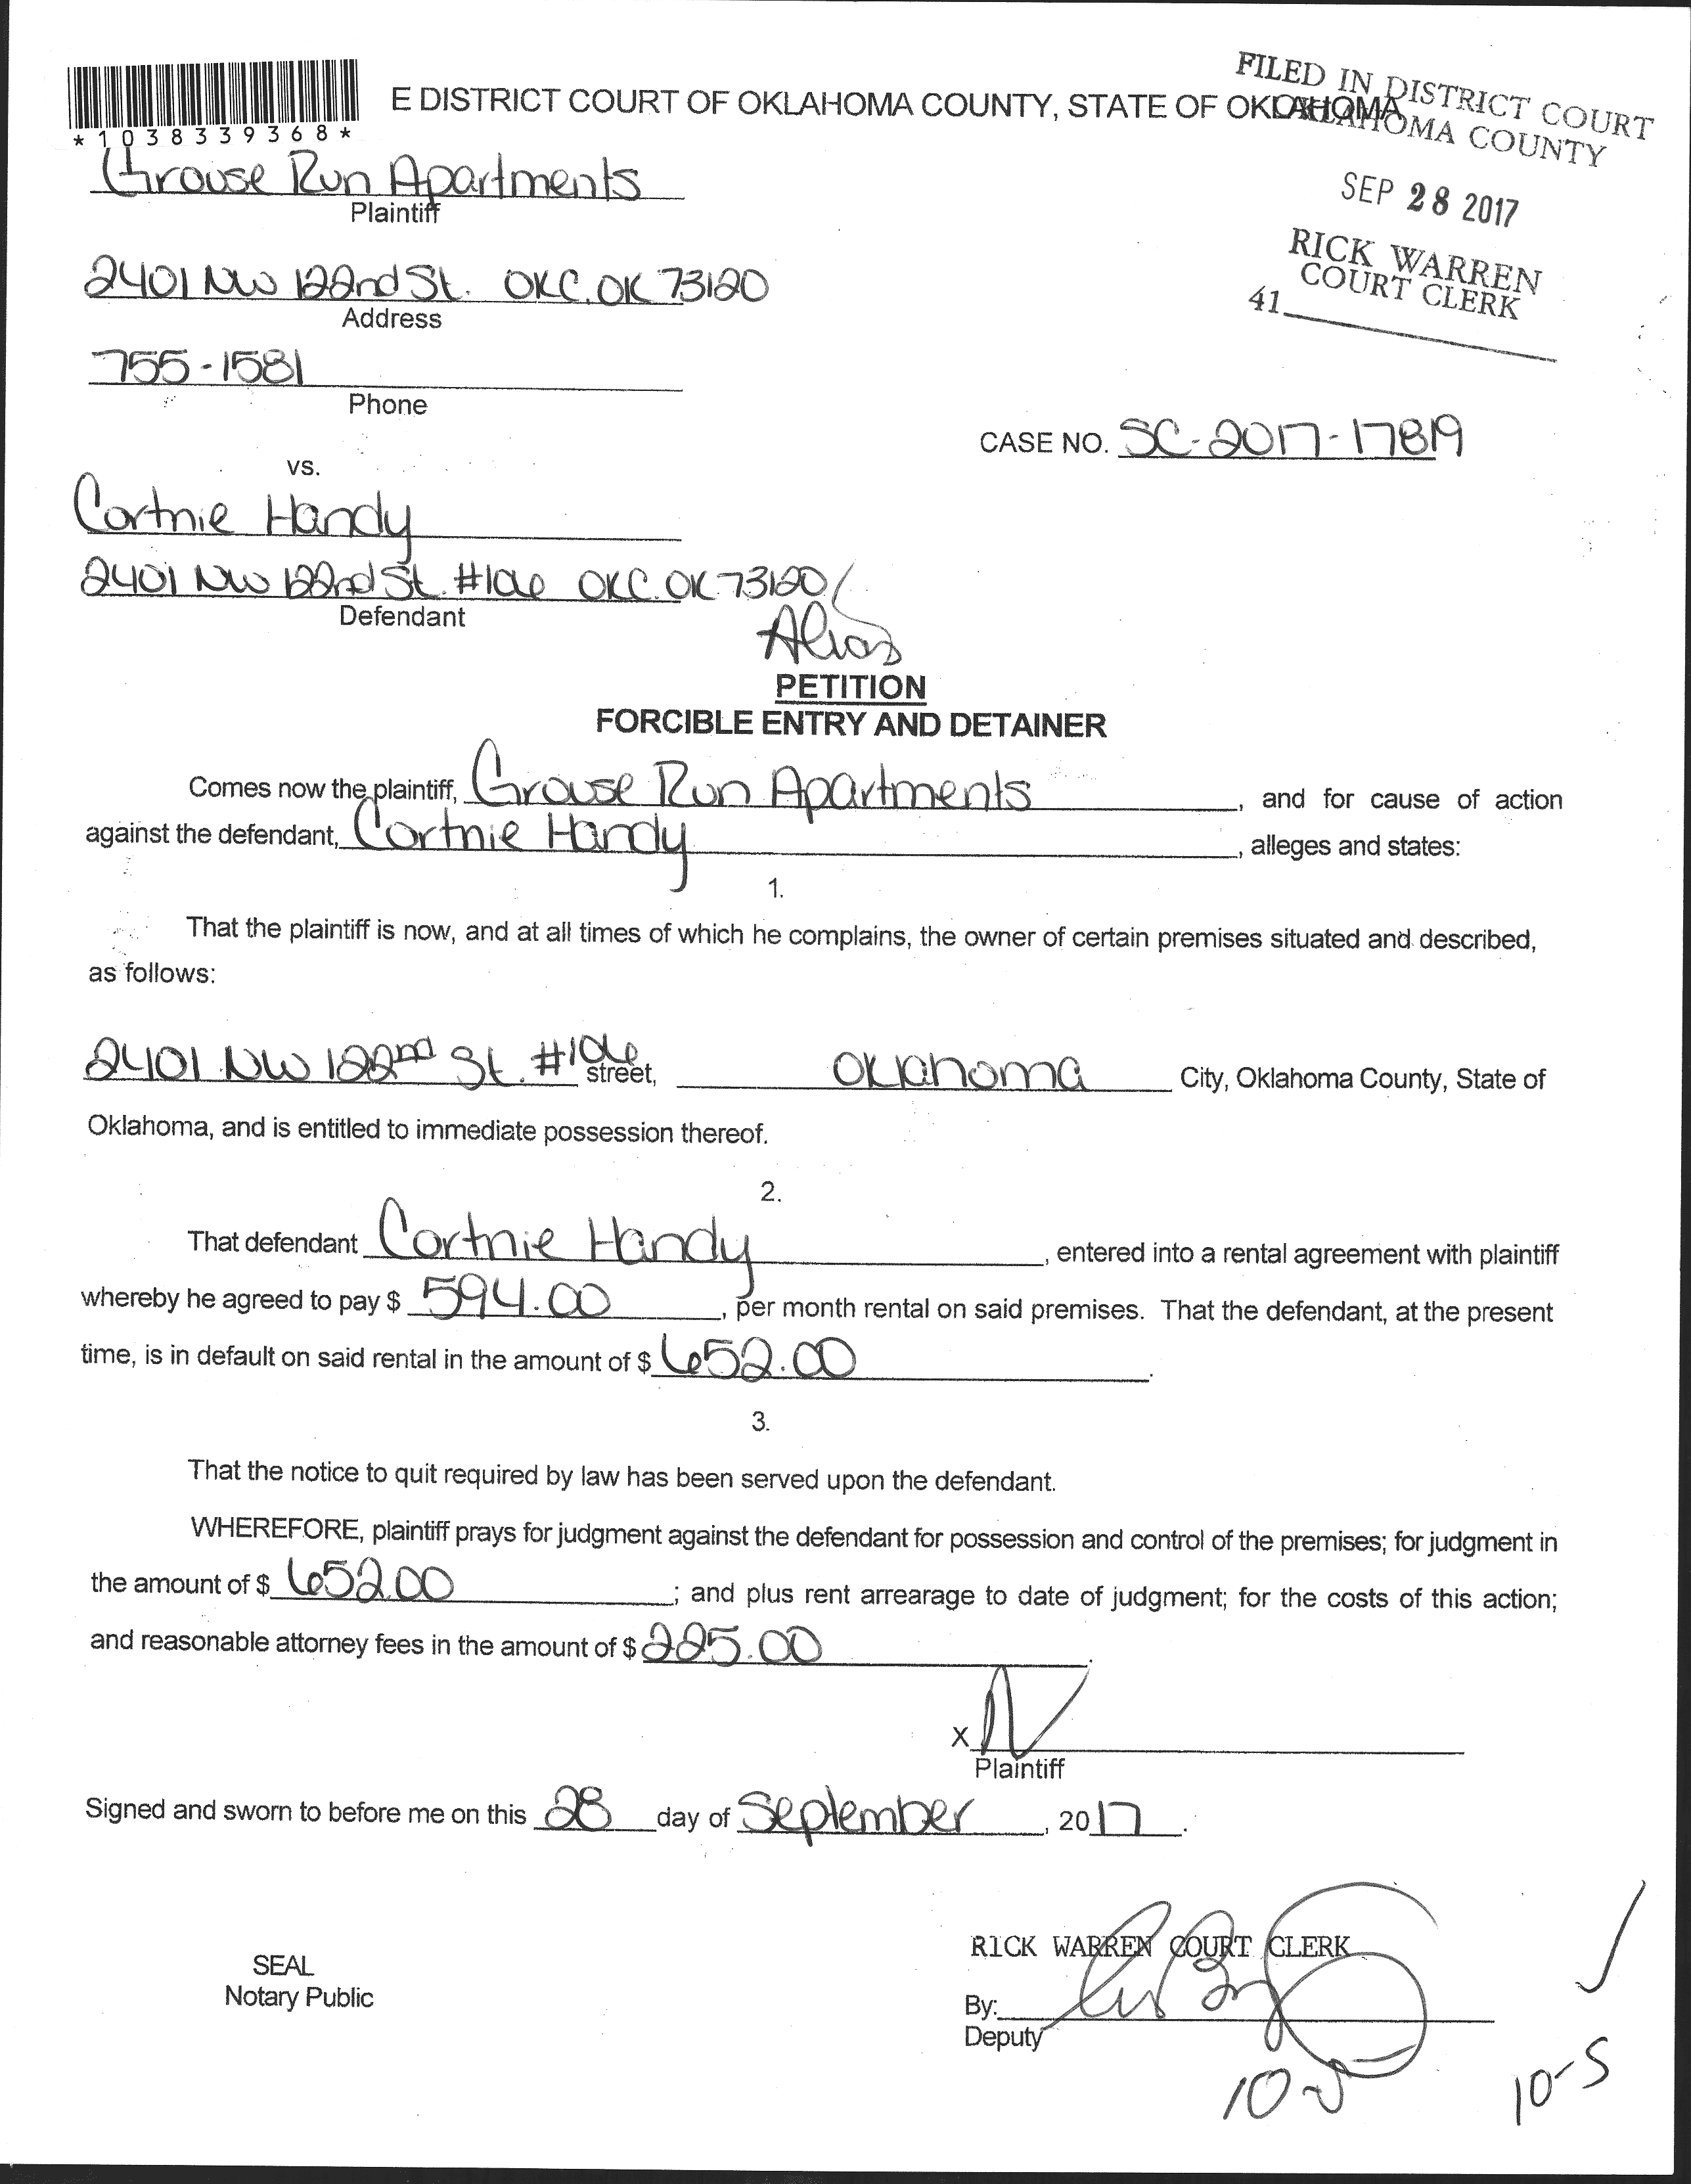 E DISTRICT COURT OF OKLAHOMA COUNTY, STATE OF OKLAHOMA
*1038339368*
FILED IN DISTRICT COURT
OKLAHOMA COUNTY
SEP 28 2017
RICK WARREN
COURT CLERK
41
Grouse Run Apartments
Plaintiff
2401 NW 122nd St. OKC, OK 73120
Address
755-1581
Phone
CASE NO. SC-2017-17819
vs.
Cortnie Handy
2401 NW 122nd St. #106 OKC. OK 73120
Defendant
Alias
PETITION
FORCIBLE ENTRY AND DETAINER
Comes now the plaintiff, Grouse Run Apartments, and for cause of action
against the defendant, Cortnie Handy, alleges and states:
1.
That the plaintiff is now, and at all times of which he complains, the owner of certain premises situated and described,
as follows:
2401 NW 122nd St. #106 street, Oklahoma City, Oklahoma County, State of
Oklahoma, and is entitled to immediate possession thereof.
2.
That defendant Cortnie Handy, entered into a rental agreement with plaintiff
whereby he agreed to pay $ 594.00, per month rental on said premises. That the defendant, at the present
time, is in default on said rental in the amount of $ 652.00.
3.
That the notice to quit required by law has been served upon the defendant.
WHEREFORE, plaintiff prays for judgment against the defendant for possession and control of the premises; for judgment in
the amount of $ 652.00; and plus rent arrearage to date of judgment; for the costs of this action;
and reasonable attorney fees in the amount of $ 225.00.
X
Plaintiff
Signed and sworn to before me on this 28 day of September, 2017.
RICK WARREN COURT CLERK
SEAL
Notary Public
By:
Deputy
10-5